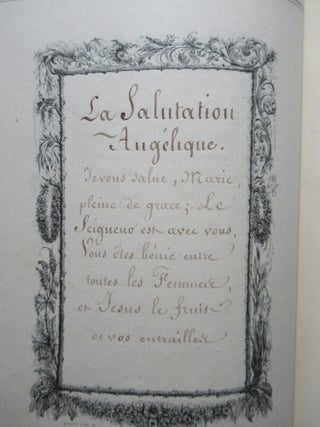 La Salutation
Angélique.
Je vous salue, Marie,
pleine de grace; Le
Seigneur est avec vous.
Vous êtes bénie entre
toutes les Femmes,
et Jesus le fruit
de vos entrailles